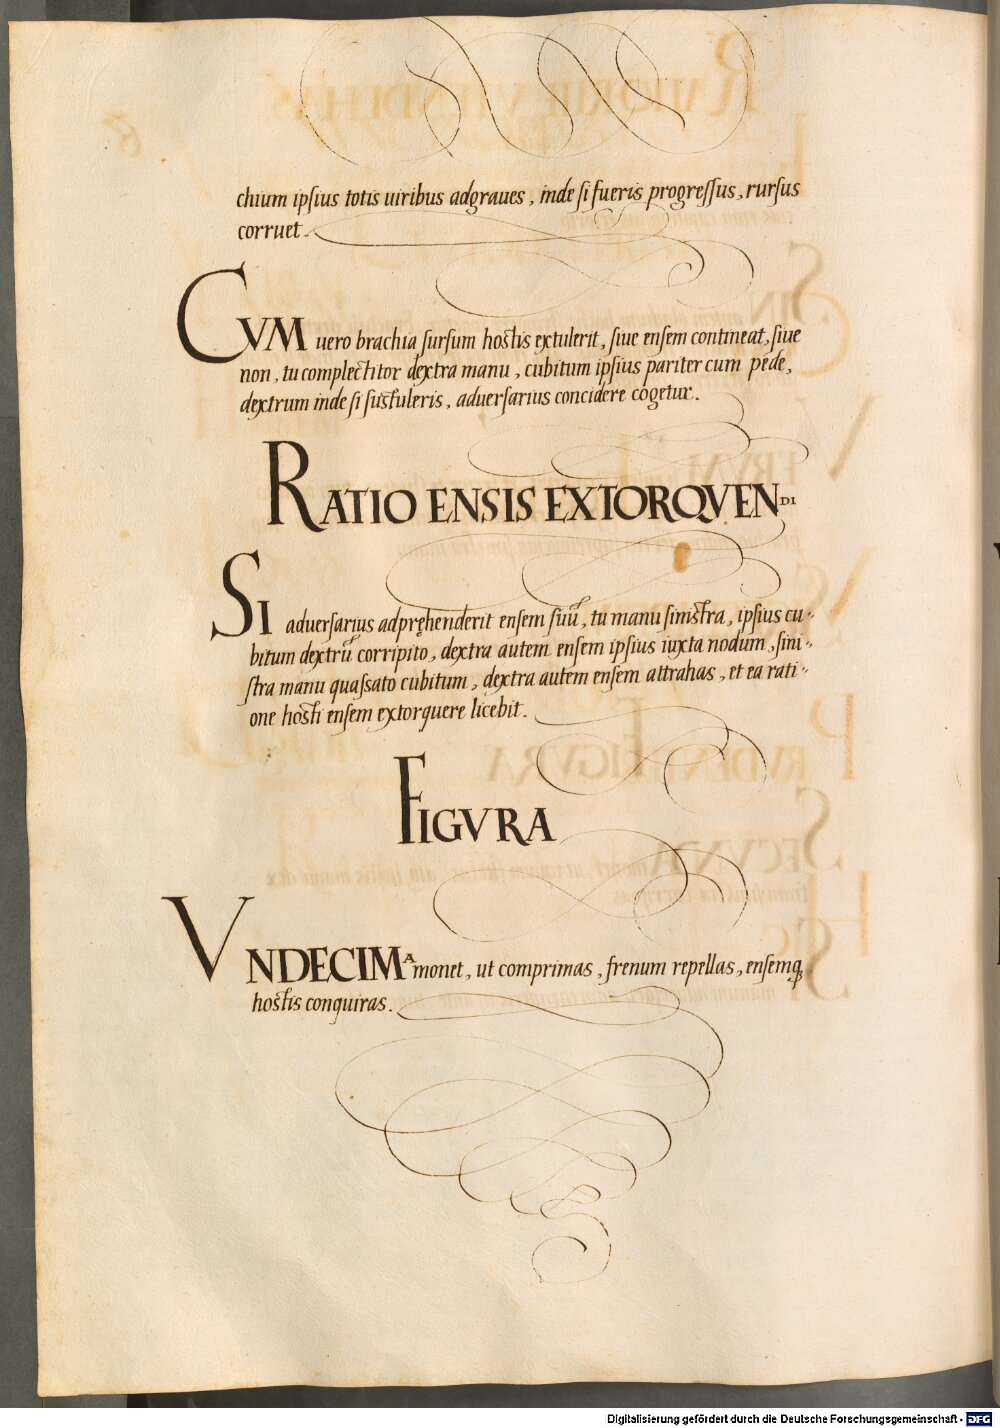 chium ipsius totis uiribus adgraues, inde si fueris progressus, rursus
corruet.
CVM uero brachia sursum hostis extulerit, siue ensem contineat, siue
non, tu complectitor dextra manu, cubitum ipsius pariter cum pede,
dextrum inde si sustuleris, aduersarius concidere cogetur.
RATIO ENSIS EXTORQVENDI
SI aduersarius adpręhenderit ensem suũ, tu manu sinistra, ipsius cu-
bitum dextrũ corripito, dextra autem ensem ipsius iuxta nodum, sini-
stra manu quassato cubitum, dextra autem ensem attrahas, et ea rati-
one hosti ensem extorquere licebit.
FIGVRA
VNDECIMA monet, ut comprimas, frenum repellas, ensemq;
hostis conquiras.
Digitalisierung gefördert durch die Deutsche Forschungsgemeinschaft - DFG